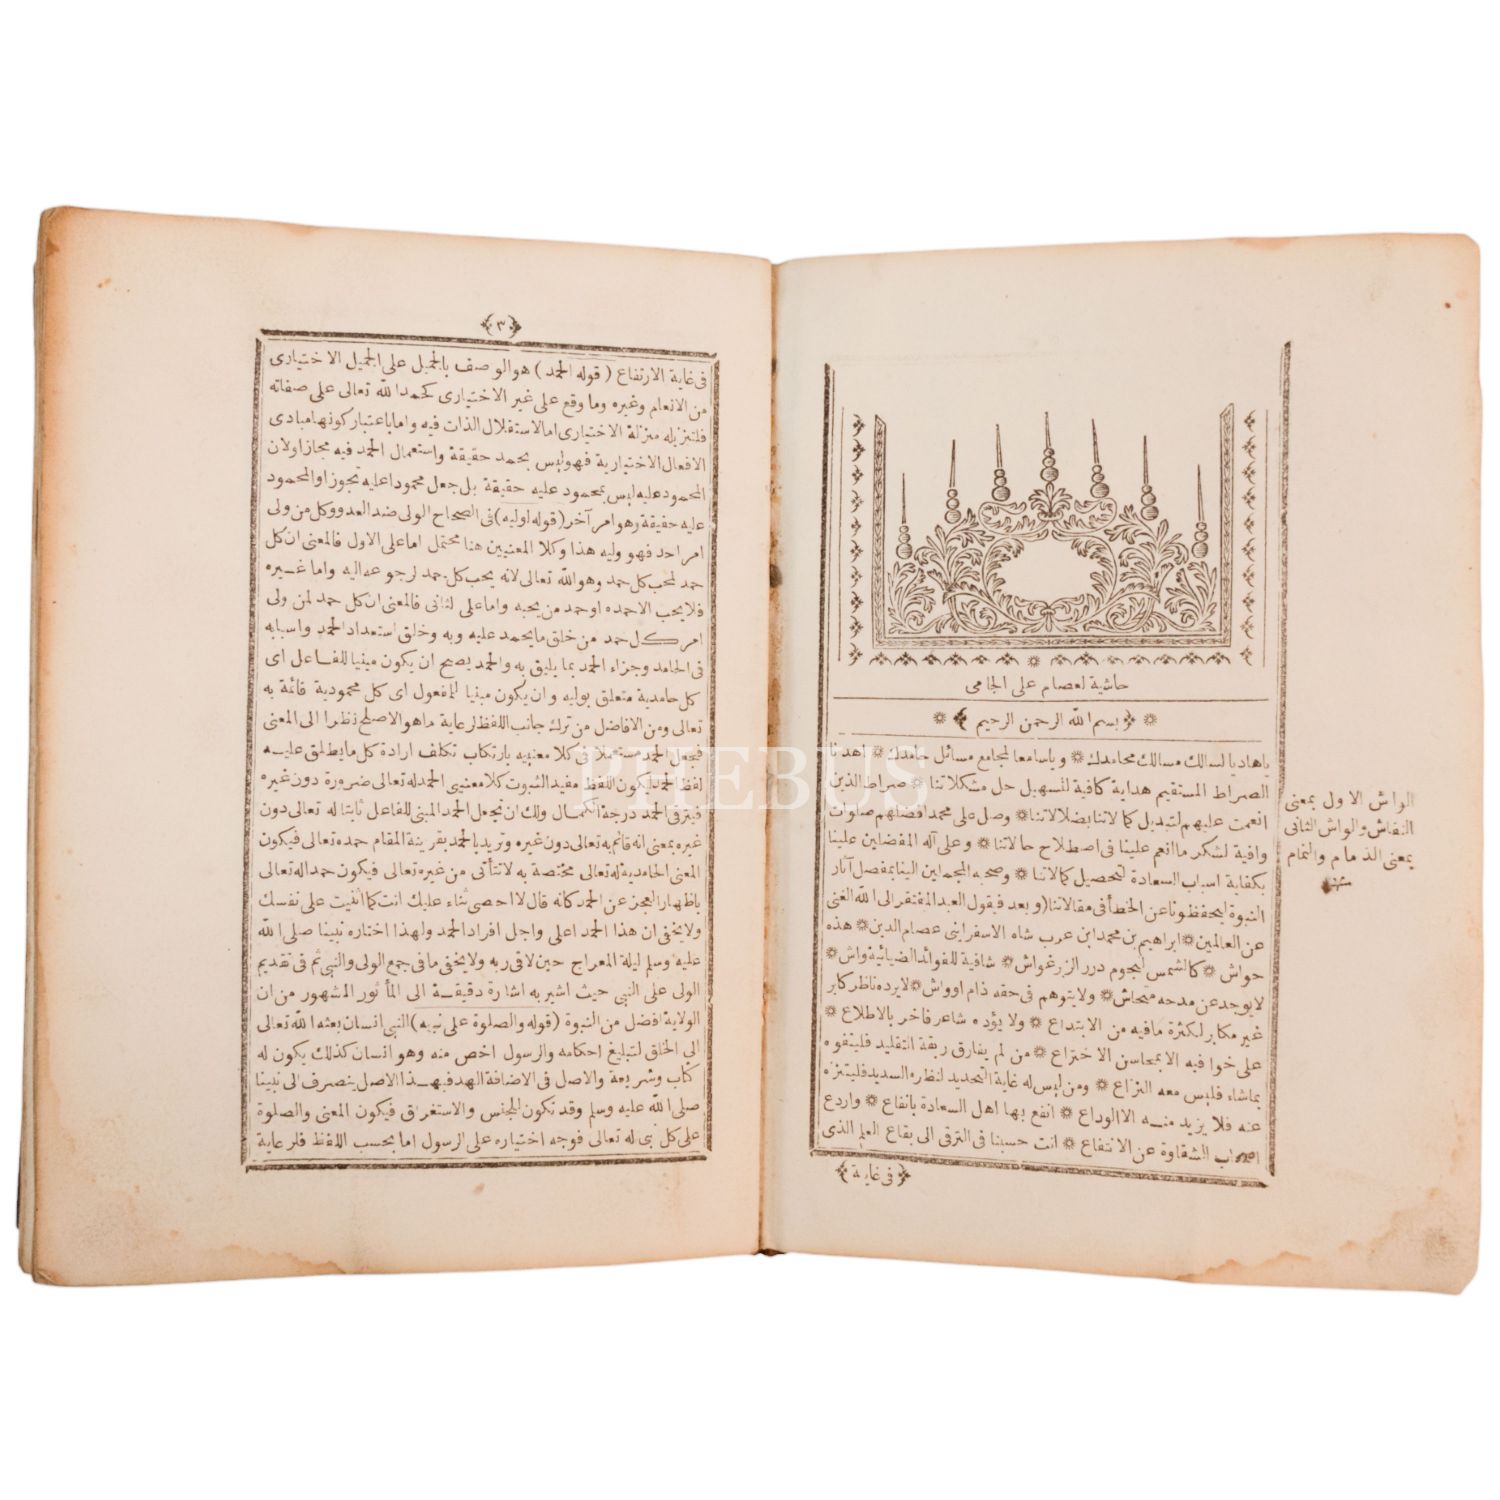 حاشية لعصام على الجامى
بسم الله الرحمن الرحيم
ياهاديا لسالك مسالك محامدك * وياسامعا لمجامع مسائل حامدك * اهدنا
الصراط المستقيم هداية كافية لتسهيل حل مشكلاتنا * صراط الذين
انعمت عليهم لتبديل كمالاتنا بضلالاتنا * وصل على محمد افضلهم صلوات
وافية لشكر ما انعم علينا فى اصطلاح حالاتنا * وعلى آله المفضلين علينا
بكفاية اسباب السعادة لتحصيل كمالاتنا * وصحبه المجملين الينا بمفصل آثار
النبوة ليحفظونا عن الخطأ فى مقالاتنا (وبعد فيقول العبد المفتقر الى الله الغنى
عن العالمين * ابراهيم بن محمد ابن عرب شاه الاسفراينى عصام الدين * هذه
حواش * كالشمس لنجوم درر الزرغواش * شافية للفوائد الضيائية واش *
لا يوجد عن مدحه متحاش * ولا يتوهم فى حقه ذام اوواش * لا يرده ناظر كابر
غير مكابر لكثرة مافيه من الابتداع * ولا يؤده شاعر فاخر بالاطلاع *
على خوافيه الا بمحاسن الاختراع * من لم يفارق ربقة التقليد فليتفوه
بماشاء فليس معه النزاع * ومن ليس له غاية التحديد لنظره السديد فليتنزه
عنه فلا يزيد منه الا الوداع * انفع بها اهل السعادة بانفاع * واردع
اصحاب الشقاوة عن الانتفاع * انت حسبنا فى الترقى الى بقاع العلم الذى
فى غاية
الواش الاول بمعنى
النقاش والواش الثانى
بمعنى الذمام والنمام
منه
٣
فى غاية الارتفاع (قوله الحمد) هو الوصف بالجميل على الجميل الاختيارى
من الانعام وغيره وما وقع على غير الاختيارى كحمد الله تعالى على صفاته
فلتنزيله منزلة الاختيارى اما لاستقلال الذات فيه واما باعتبار كونها مبادى
الافعال الاختيارية فهو ليس بحمد حقيقة واستعمال الحمد فيه مجاز اولان
المحمود عليه ليس بمحمود عليه حقيقة بل جعل محمودا عليه تجوز او المحمود
عليه حقيقة وهو امر آخر (قوله لوليه) فى الصحاح الولى ضد العدو وكل من ولى
امر احد فهو وليه هذا وكلا المعنيين هنا محتمل اما على الاول فالمعنى ان كل
حمد لمحب كل حمد وهو الله تعالى لانه يحب كل حمد لرجوعه اليه واما غيره
فلا يحب الا حمده او حمد من يحبه واما على الثانى فالمعنى ان كل حمد لمن ولى
امر كل حمد من خلق ما يحمد عليه وبه وخلق استعداد الحمد واسبابه
فى الحامد وجزاء الحمد بما يليق به والحمد يصح ان يكون مبنيا للفاعل اى
كل حامدية متعلق بوليه وان يكون مبنيا للمفعول اى كل محمودية قائمة به
تعالى ومن الافاضل من ترك جانب اللفظ لرعاية ما هو الاصلح نظرا الى المعنى
فجعل الحمد مستعملا فى كلا معنييه بارتكاب تكلف ارادة كل ما يطلق عليه
لفظ الحمد ليكون اللفظ مفيد الثبوت كلا معنيى الحمد له تعالى ضرورة دون غيره
فيترقى الحمد درجة الكمال ولك ان تجعل الحمد المبنى للفاعل ثابتا له تعالى دون
غيره بمعنى انه قائم به تعالى دون غيره وتريد بالحمد بقرينة المقام حمده تعالى فيكون
المعنى الحامدية له تعالى مختصة به لا تتأتى من غيره تعالى فيكون حمدا له تعالى
باظهار العجز عن الحمد كانه قال لا احصى ثناء عليك انت كما اثنيت على نفسك
ولا يخفى ان هذا الحمد اعلى واجل افراد الحمد ولهذا اختاره نبينا صلى الله
عليه وسلم ليلة المعراج حين لاقى ربه ولا يخفى ما فى جمع الولى والنبى ثم فى تقديم
الولى على النبى حيث اشير به اشارة دقيقة الى المأثور المشهور من ان
الولاية افضل من النبوة (قوله والصلوة على نبيه) النبى انسان بعثه الله تعالى
الى الخلق لتبليغ احكامه والرسول اخص منه وهو انسان كذلك يكون له
كتاب وشريعة والاصل فى الاضافة العهد فبهذا الاصل ينصرف الى نبينا
صلى الله عليه وسلم وقد تكون للجنس والاستغراق فيكون المعنى والصلوة
على كل نبى له تعالى فوجه اختياره على الرسول اما بحسب اللفظ فلرعاية
THEBUS